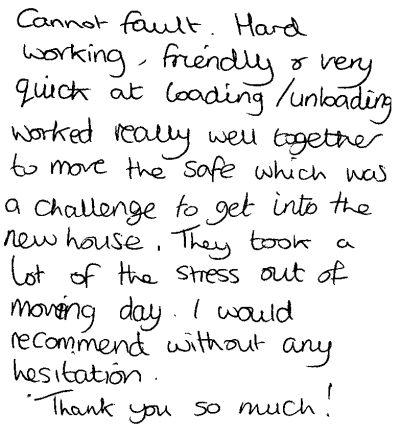 Cannot fault. Hard
working, friendly & very
quick at loading/unloading
worked really well together
to move the safe which was
a challenge to get into the
new house. They took a
lot of the stress out of
moving day. I would
recommend without any
hesitation.
Thank you so much!